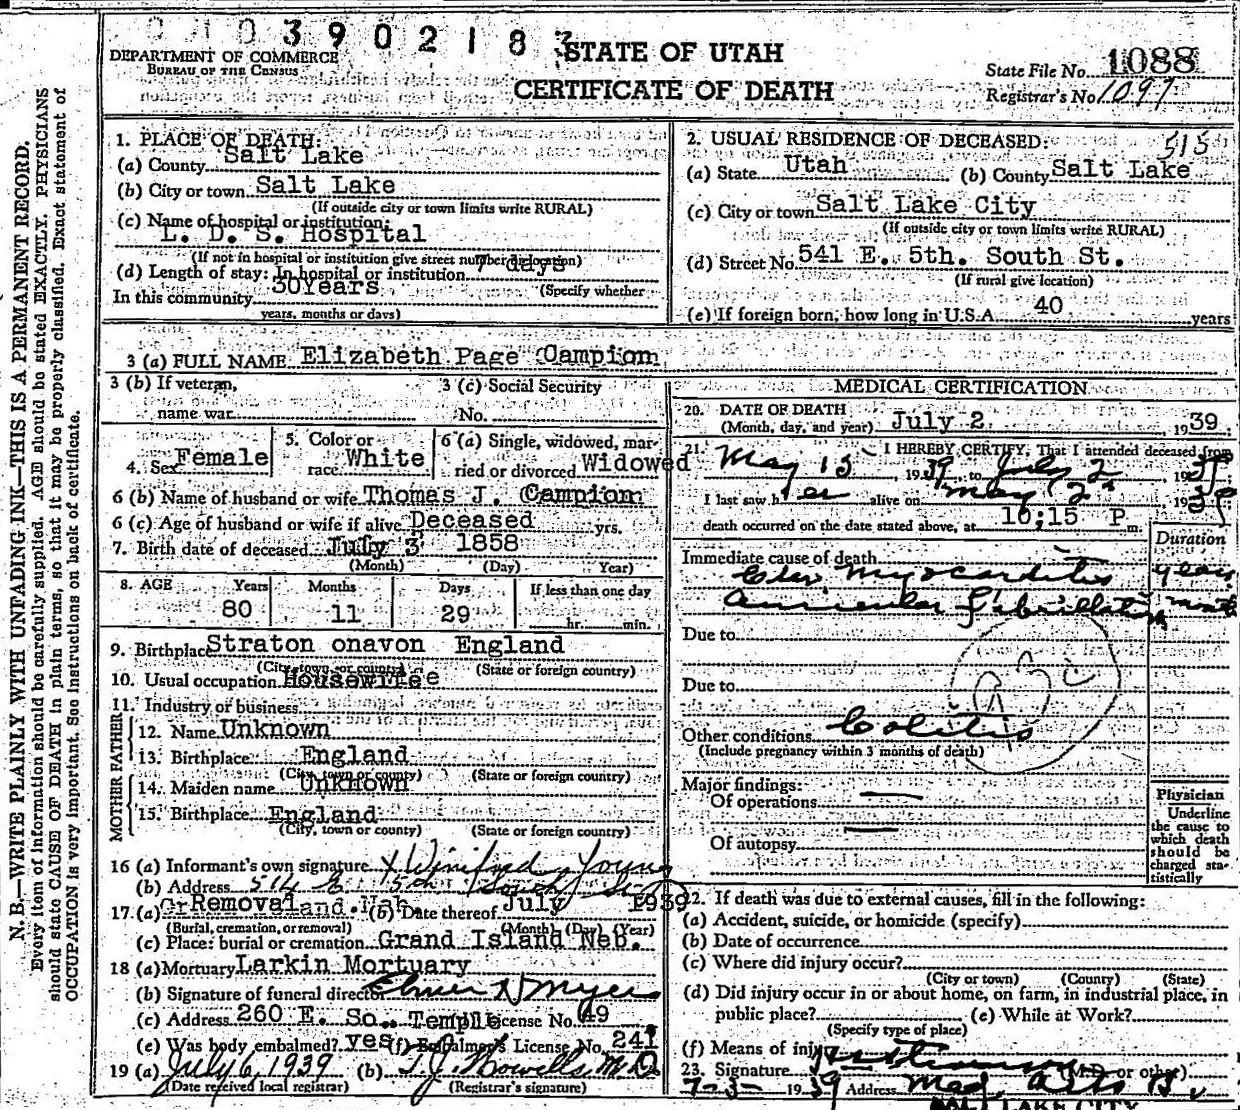 0390218
DEPARTMENT OF COMMERCE
BUREAU OF THE CENSUS
STATE OF UTAH
CERTIFICATE OF DEATH
State File No. 1088
Registrar's No. 1097
N. B.—WRITE PLAINLY WITH UNFADING INK—THIS IS A PERMANENT RECORD.
Every item of information should be carefully supplied. AGE should be stated EXACTLY. PHYSICIANS
should state CAUSE OF DEATH in plain terms, so that it may be properly classified. Exact statement of
OCCUPATION is very important. See instructions on back of certificate.
1. PLACE OF DEATH:
(a) County Salt Lake
(b) City or town Salt Lake
(If outside city or town limits write RURAL)
(c) Name of hospital or institution:
L. D. S. Hospital
(If not in hospital or institution give street number or location)
(d) Length of stay: In hospital or institution 7 days
(Specify whether
In this community 30Years
years, months or days)
2. USUAL RESIDENCE OF DECEASED: 515
(a) State Utah (b) County Salt Lake
(c) City or town Salt Lake City
(If outside city or town limits write RURAL)
(d) Street No. 541 E. 5th. South St.
(If rural give location)
(e) If foreign born, how long in U.S.A. 40 years
3 (a) FULL NAME Elizabeth Page Campion
3 (b) If veteran,
name war
3 (c) Social Security
No.
4. Sex Female
5. Color or
race White
6 (a) Single, widowed, mar-
ried or divorced Widowed
6 (b) Name of husband or wife Thomas J. Campion
6 (c) Age of husband or wife if alive Deceased yrs.
7. Birth date of deceased July 3 1858
(Month) (Day) (Year)
8. AGE Years Months Days If less than one day
80 11 29 hr. min.
9. Birthplace Straton onavon England
(City, town or county) (State or foreign country)
10. Usual occupation Housewife
11. Industry or business
FATHER
12. Name Unknown
13. Birthplace England
(City, town or county) (State or foreign country)
MOTHER
14. Maiden name Unknown
15. Birthplace England
(City, town or county) (State or foreign country)
16 (a) Informant's own signature x Winifred Young
(b) Address 514 E 5th South St
17. (a) Removal (b) Date thereof July 1939
(Burial, cremation, or removal) (Month) (Day) (Year)
(c) Place: burial or cremation Grand Island Neb.
18 (a) Mortuary Larkin Mortuary
(b) Signature of funeral director Elmer N Myers
(c) Address 260 E. So. Temple License No. 49
(e) Was body embalmed? yes (f) Embalmer's License No. 241
19 (a) July 6, 1939 (b) T.J. Howells M.D.
(Date received local registrar) (Registrar's signature)
MEDICAL CERTIFICATION
20. DATE OF DEATH
(Month, day, and year) July 2, 1939
21. I HEREBY CERTIFY, That I attended deceased from
May 15, 1939, to July 2, 1939
I last saw her alive on 1939
death occurred on the date stated above, at 10;15 P m.
Duration
Immediate cause of death
Myocarditis years
Auricular fibrillation months
Due to
Due to
Other conditions Colitis
(Include pregnancy within 3 months of death)
Major findings:
Of operations —
Of autopsy —
Physician
Underline
the cause to
which death
should be
charged sta-
tistically
22. If death was due to external causes, fill in the following:
(a) Accident, suicide, or homicide (specify)
(b) Date of occurrence
(c) Where did injury occur?
(City or town) (County) (State)
(d) Did injury occur in or about home, on farm, in industrial place, in
public place? (e) While at Work?
(Specify type of place)
(f) Means of injury
23. Signature (M.D. or other)
7-3- 1939 Address Med. Arts B
SALT LAKE CITY